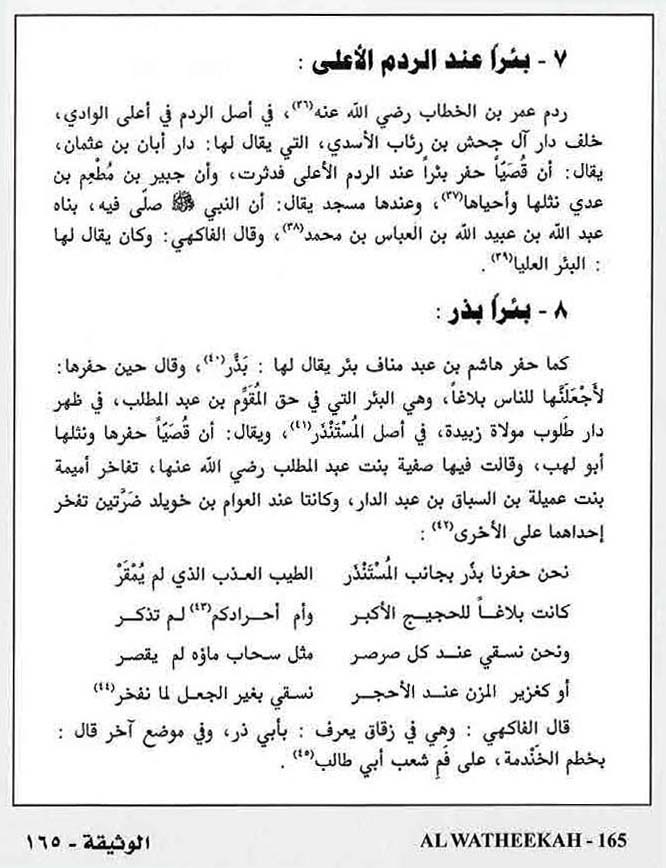 ٧ - بئراً عند الردم الأعلى :
ردم عمر بن الخطاب رضي الله عنه(٣٦)، في أصل الردم في أعلى الوادي،
خلف دار آل جحش بن رئاب الأسدي، التي يقال لها: دار أبان بن عثمان،
يقال: أن قُصَيّاً حفر بئراً عند الردم الأعلى فدثرت، وأن جبير بن مُطْعِم بن
عدي نثلها وأحياها(٣٧)، وعندها مسجد يقال: أن النبي ﷺ صلّى فيه، بناه
عبد الله بن عبيد الله بن العباس بن محمد(٣٨)، وقال الفاكهي: وكان يقال لها
: البئر العليا(٣٩) .
٨ - بئراً بذر :
كما حفر هاشم بن عبد مناف بئر يقال لها : بَذَّر(٤٠)، وقال حين حفرها:
لأَجْعَلَنَّها للناس بلاغاً، وهي البئر التي في حق المُقَوِّم بن عبد المطلب، في ظهر
دار طَلُوب مولاة زبيدة، في أصل المُسْتَنْذَر(٤١)، ويقال: أن قُصَيّاً حفرها ونثلها
أبو لهب، وقالت فيها صفية بنت عبد المطلب رضي الله عنها، تفاخر أميمة
بنت عميلة بن السباق بن عبد الدار، وكانتا عند العوام بن خويلد ضَرَّتين تفخر
إحداهما على الأخرى(٤٢) :
نحن حفرنا بذّر بجانب المُسْتَنْذَر الطيب العـذب الذي لم يُمْقَرْ
كانت بلاغـاً للحجيـج الأكبـر وأم أحـرادكم(٤٣) لـم تذكـر
ونحن نسقي عنـد كل صرصر مثل سحاب ماؤه لم يقصر
أو كغزير المزن عنـد الأحجـر نسقي بغير الجعـل لما نفخر(٤٤)
قال الفاكهي : وهي في زقاق يعرف : بأبي ذر، وفي موضع آخر قال :
بخطم الخَنْدمة، على فَمِ شعب أبي طالب(٤٥) .
الوثيقة - ١٦٥
AL WATHEEKAH - 165